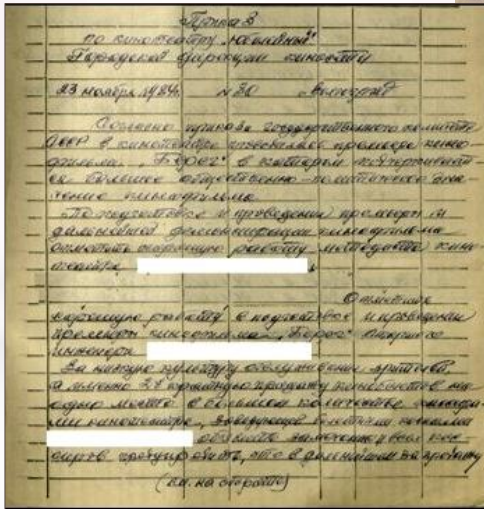 Приказ
по кинотеатру „Юбилейный"
Городской дирекции киносети
23 ноября 1984г. № 30 Волгоград
Согласно приказа Государственного комитета
СССР в кинотеатре проведена премьера кино-
фильма „Берег" в котором подчеркивает-
ся большое общественно-политическое зна-
чение кинофильма.
По подготовке и проведении премьеры и
дальнейшей кинофильма
отметить хорошую работу методиста кино-
театра
Отметить
хорошую работу в подготовке и проведении
премьеры кинофильма „Берег"
инженера
За низкую культуру обслуживания зрителей,
а именно 2х кратную продажу кинобилетов на
одно место в большом количестве
кинотеатра, заведующей билетными кассами
объявить замечание и всех кас-
сиров предупредить, что в дальнейшем за продажу
(см. на обороте)